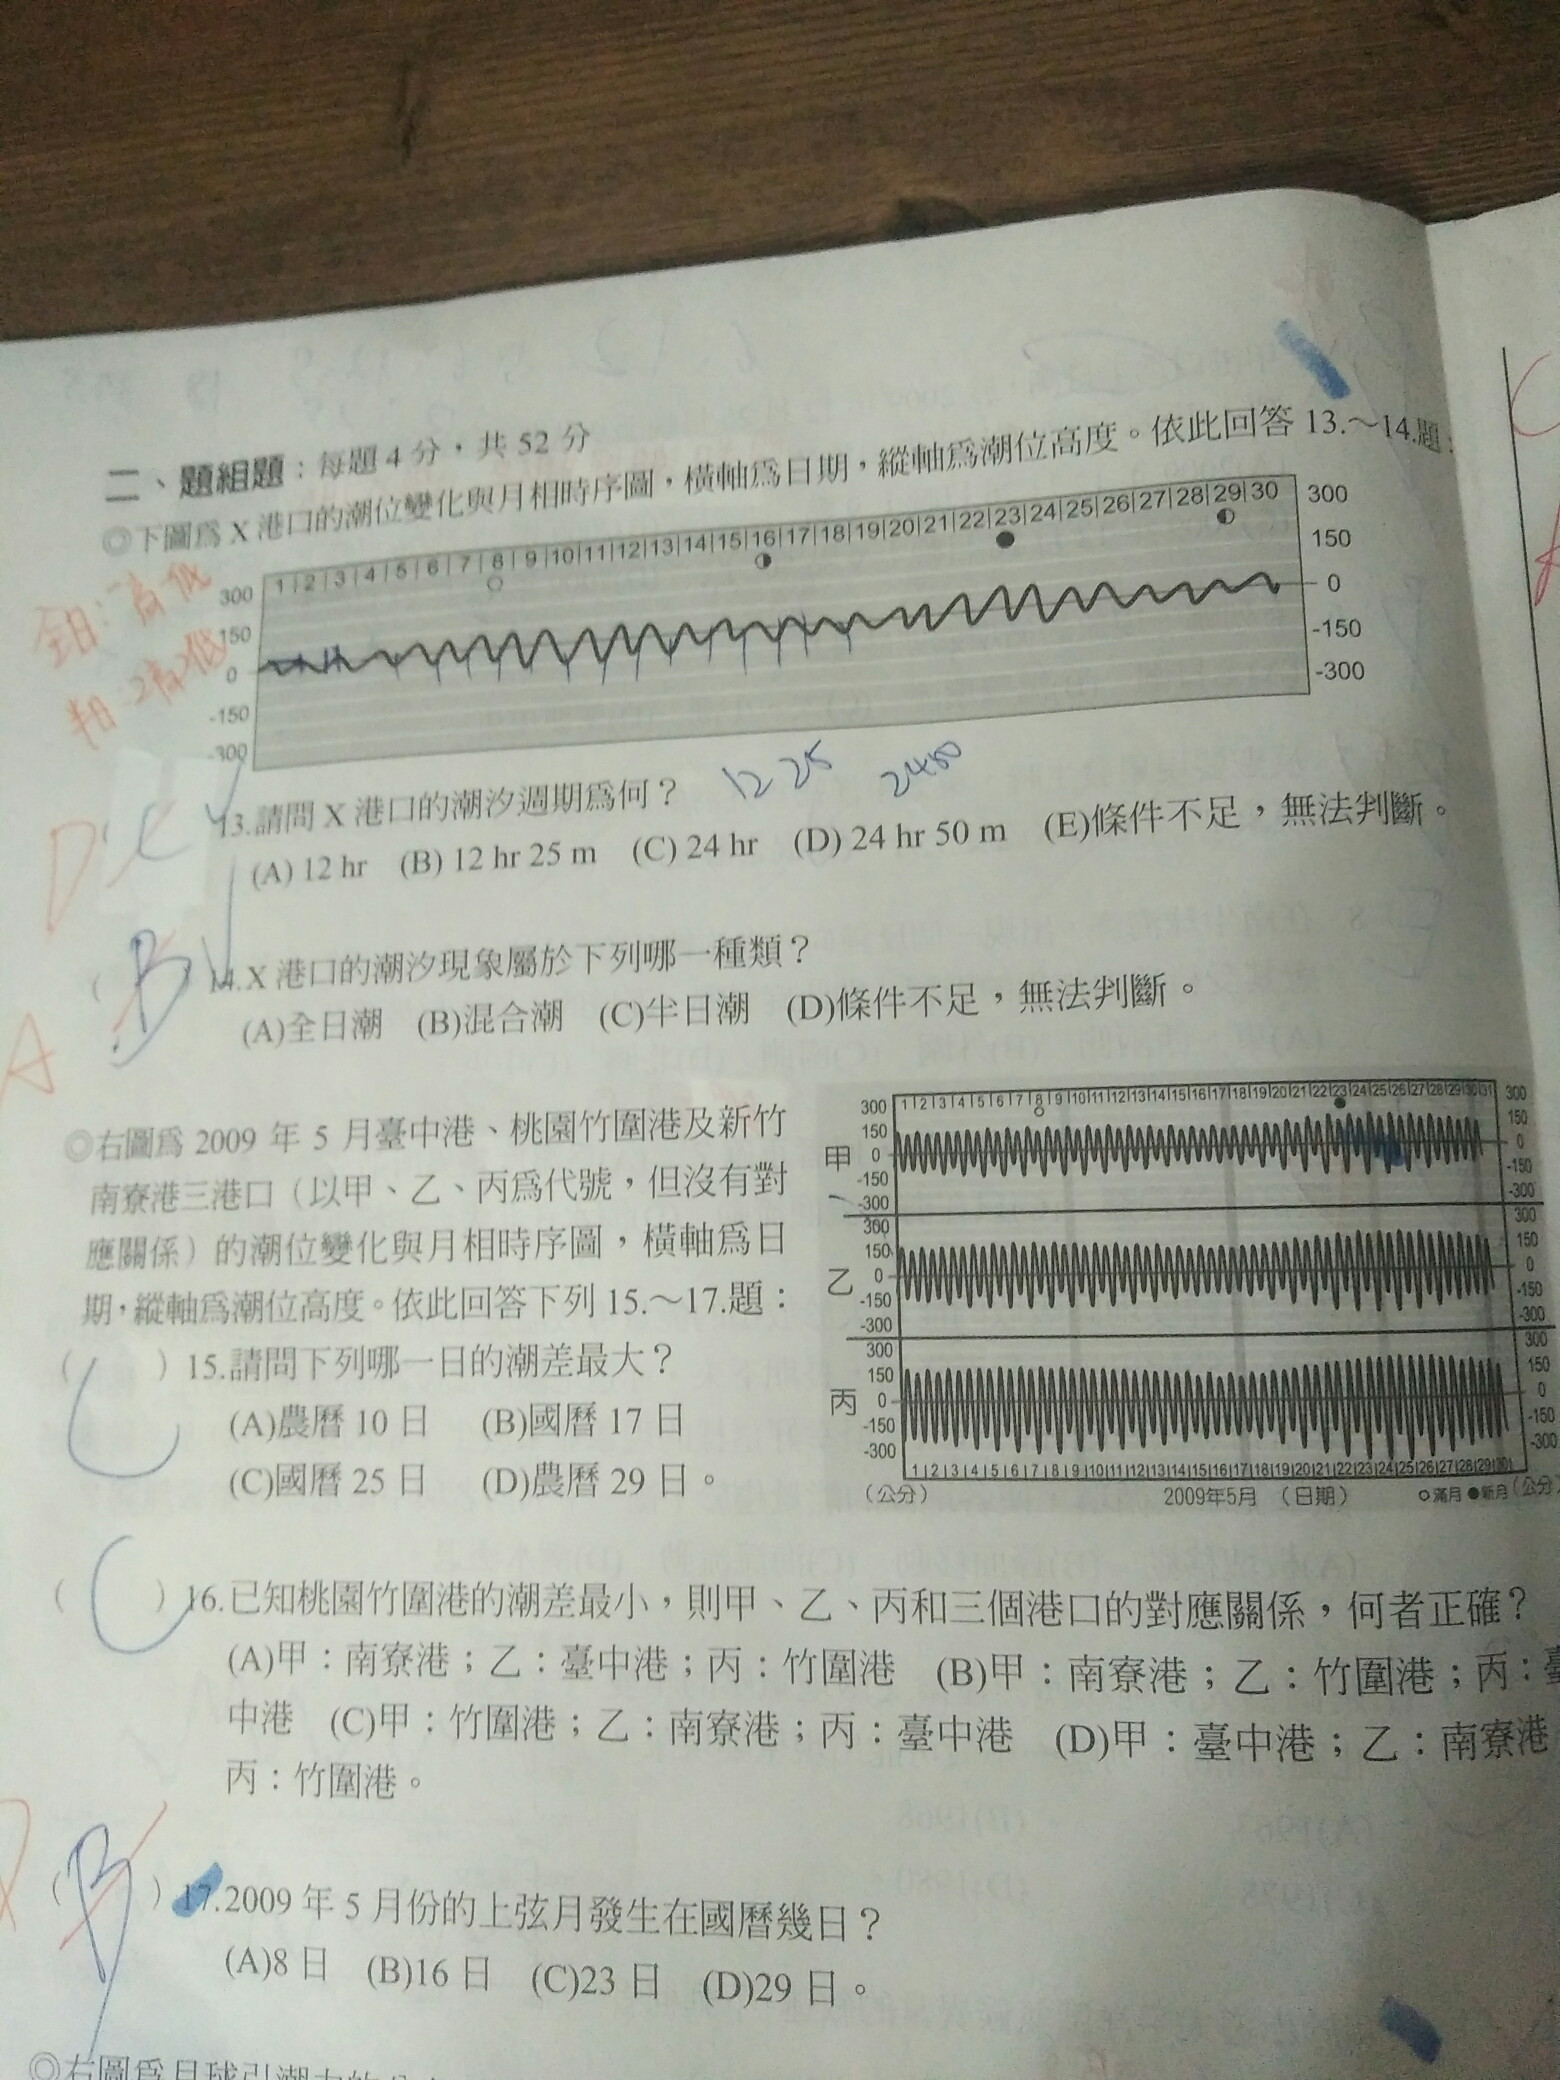 二、題組題：每題 4 分，共 52 分
◎下圖為 X 港口的潮位變化與月相時序圖，橫軸為日期，縱軸為潮位高度。依此回答 13.～14.題：
1|2|3|4|5|6|7|8|9|10|11|12|13|14|15|16|17|18|19|20|21|22|23|24|25|26|27|28|29|30
300
150
0
-150
-300
300
150
0
-150
-300
全日：一高低
半日：2高2低
12 25
2450
D
13.請問 X 港口的潮汐週期為何？
(A) 12 hr (B) 12 hr 25 m (C) 24 hr (D) 24 hr 50 m (E)條件不足，無法判斷。
A
( B ) 14.X 港口的潮汐現象屬於下列哪一種類？
(A)全日潮 (B)混合潮 (C)半日潮 (D)條件不足，無法判斷。
◎右圖為 2009 年 5 月臺中港、桃園竹圍港及新竹
南寮港三港口（以甲、乙、丙為代號，但沒有對
應關係）的潮位變化與月相時序圖，橫軸為日
期，縱軸為潮位高度。依此回答下列 15.～17.題：
1|2|3|4|5|6|7|8|9|10|11|12|13|14|15|16|17|18|19|20|21|22|23|24|25|26|27|28|29|30|31
甲
300
150
0
-150
-300
300
150
0
-150
-300
乙
300
150
0
-150
-300
300
150
0
-150
-300
丙
300
150
0
-150
-300
300
150
0
-150
-300
1|2|3|4|5|6|7|8|9|10|11|12|13|14|15|16|17|18|19|20|21|22|23|24|25|26|27|28|29|30|
（公分） 2009年5月 （日期） ○滿月 ●新月（公分）
( C ) 15.請問下列哪一日的潮差最大？
(A)農曆 10 日 (B)國曆 17 日
(C)國曆 25 日 (D)農曆 29 日。
( C ) 16.已知桃園竹圍港的潮差最小，則甲、乙、丙和三個港口的對應關係，何者正確？
(A)甲：南寮港；乙：臺中港；丙：竹圍港 (B)甲：南寮港；乙：竹圍港；丙：臺
中港 (C)甲：竹圍港；乙：南寮港；丙：臺中港 (D)甲：臺中港；乙：南寮港
丙：竹圍港。
( B ) 17.2009 年 5 月份的上弦月發生在國曆幾日？
(A)8 日 (B)16 日 (C)23 日 (D)29 日。
◎右圖為月球引潮力的